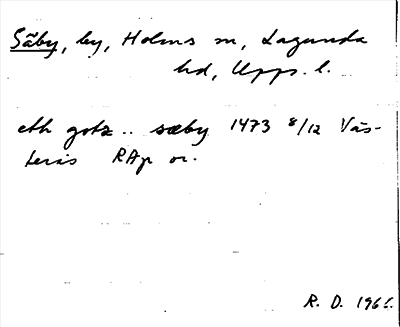 Säby, by, Holms sn, Lagunda
hd, Upps. l.
eth gotz .. sæby 1473 8/12 Väs-
terås RAp or.
R. D. 196